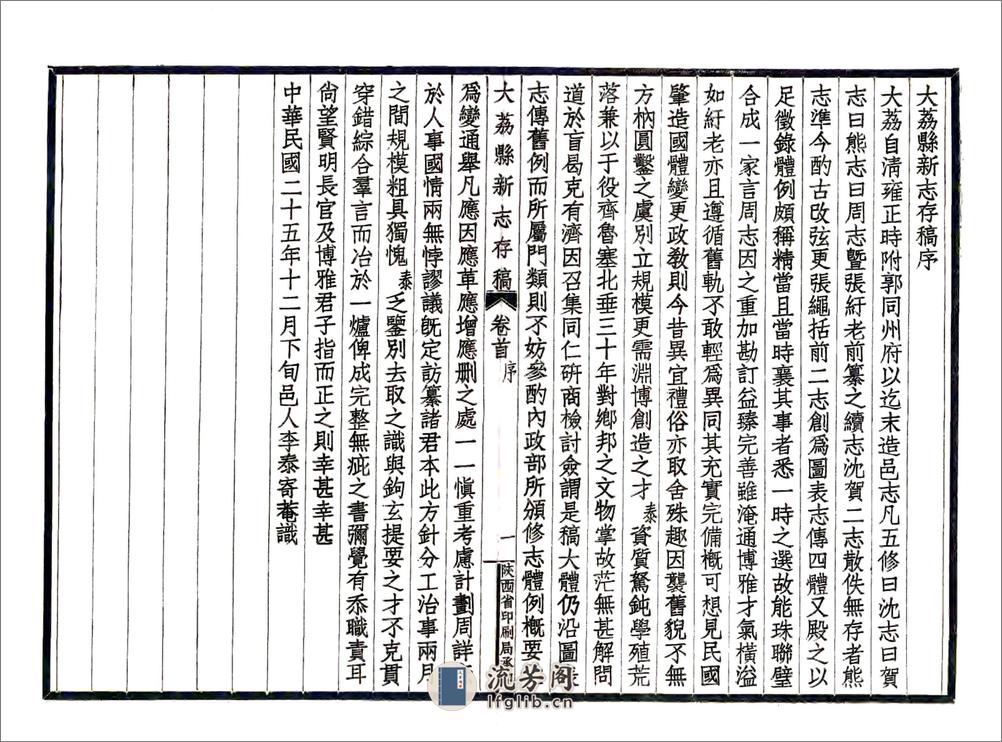 大荔縣新志存稿序
大荔自淸雍正時附郭同州府以迄末造邑志凡五修曰沈志曰賀
志曰熊志曰周志曁張紆老前纂之續志沈賀二志散佚無存者熊
志準今酌古改弦更張繩括前二志創爲圖表志傳四體又殿之以
足徵錄體例頗稱精當且當時襄其事者悉一時之選故能珠聯璧
合成一家言周志因之重加勘訂益臻完善雖淹通博雅才氣橫溢
如紆老亦且遵循舊軌不敢輕爲異同其充實完備概可想見民國
肇造國體變更政敎則今昔異宜禮俗亦取舍殊趣因襲舊貌不無
方枘圓鑿之虞別立規模更需淵博創造之才泰資質駑鈍學殖荒
落兼以于役齊魯塞北垂三十年對鄕邦之文物掌故茫無甚解問
道於盲曷克有濟因召集同仁硏商檢討僉謂是稿大體仍沿圖表
志傳舊例而所屬門類則不妨參酌內政部所頒修志體例槪要
大荔縣新志存稿 卷首 序 一 陝西省印刷局承
爲變通舉凡應因應革應增應删之處一一愼重考慮計劃周詳
於人事國情兩無悖謬議旣定訪纂諸君本此方針分工治事兩月
之間規模粗具獨愧泰乏鑒別去取之識與鉤玄提要之才不克貫
穿錯綜合羣言而冶於一爐俾成完整無疵之書彌覺有忝職責耳
尙望賢明長官及博雅君子指而正之則幸甚幸甚
中華民國二十五年十二月下旬邑人李泰寄菴識
流芳阁
lfglib.cn